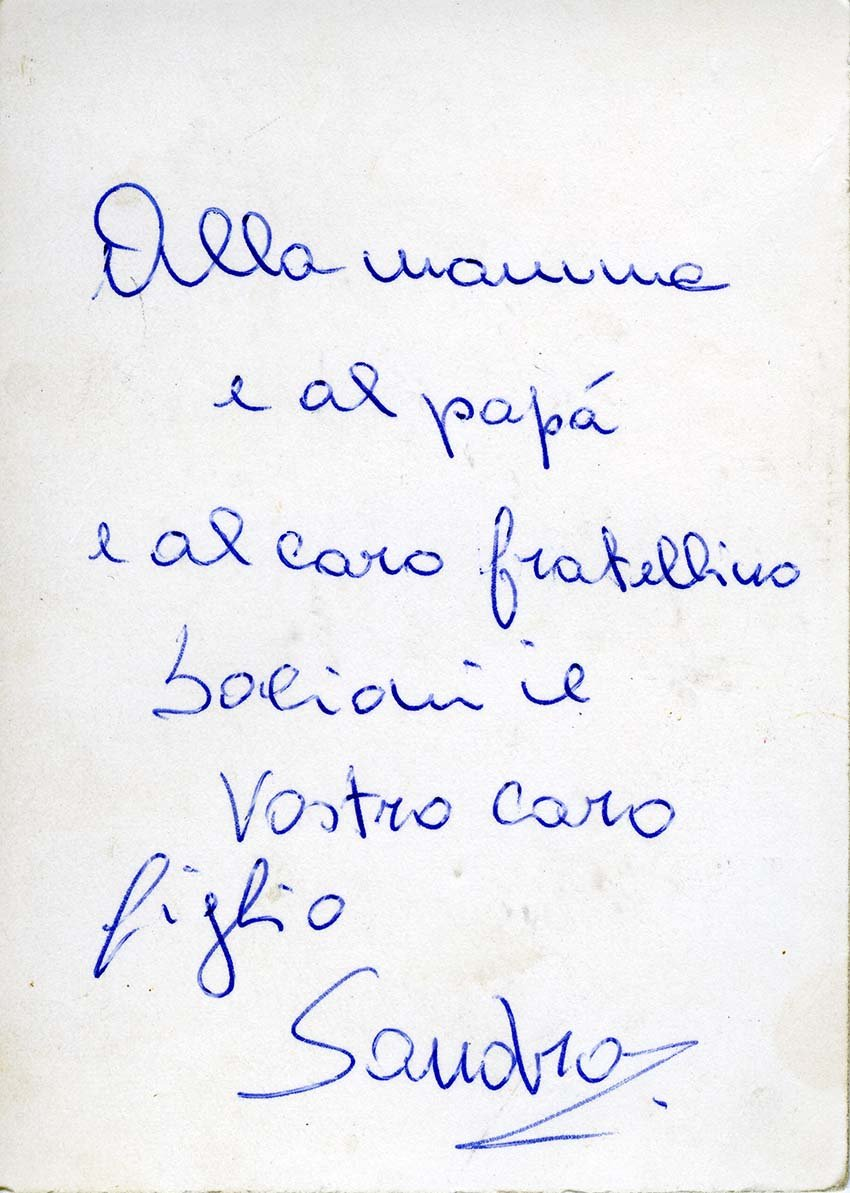 Alla mamma
e al papá
e al caro fratellino
bacioni il
Vostro caro
figlio
Sandro